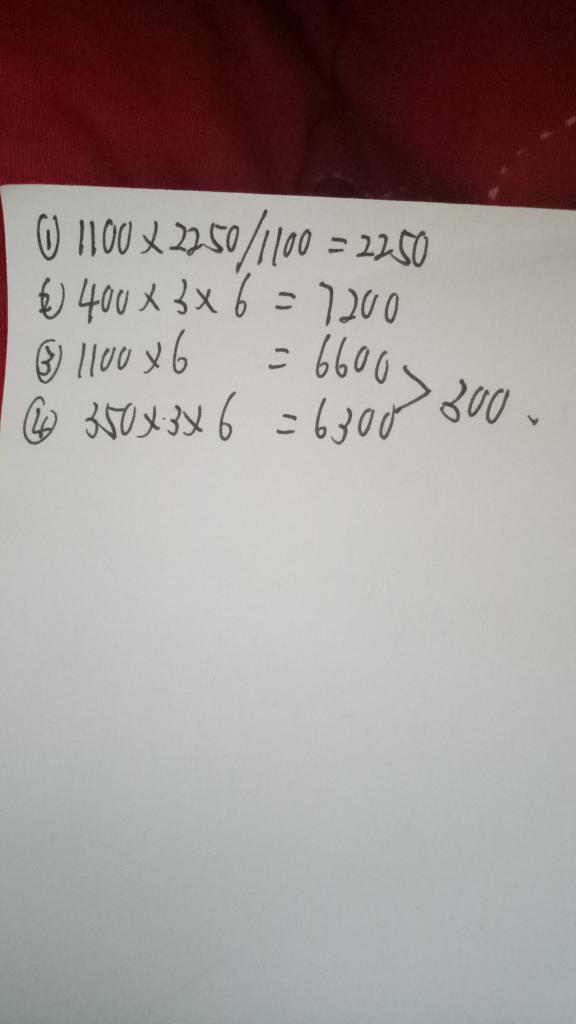 ① 1100×2250/1100 = 2250
② 400×3×6 = 7200
③ 1100×6 = 6600
④ 350×3×6 = 6300 > 300、